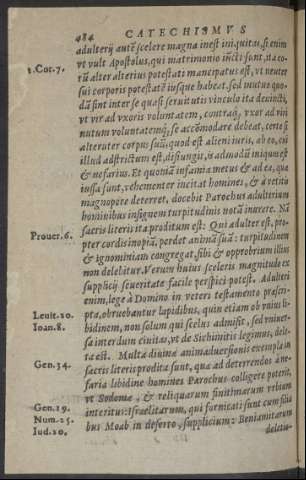 484 CATECHISMVS
adulterij autẽ scelere magna inest iniquitas, si enim
1.Cor.7. vt vult Apostolus, qui matrimonio iũcti sunt, ita eo-
rũ alter alterius potestati mancipatus est, vt neuter
sui corporis potestatẽ iusque habeat, sed mutuo quo-
dã sint inter se quasi seruitutis vinculo ita deuincti,
vt vir ad vxoris voluntatem, contraq́, vxor ad viri
nutum voluntatemq́, se accõmodare debeat, certè si
alteruter corpus suũ, quod est alieni iuris, ab eo, cui
illud adstrictum est, disiungit, is admodũ iniquus est
& nefarius. Et quoniã infamiæ metus & ad ea, quæ
iussa sunt, vehementer incitat homines, & à vetitis
magnopere deterret, docebit Parochus adulterium
hominibus insignem turpitudinis notã inurere. Nã
sacris literis ita proditum est: Qui adulter est, pro-
Prouer.6. pter cordis inopiã, perdet animã suã: turpitudinem
& ignominiam congregat sibi & opprobrium illius
non delebitur. Verum huius sceleris magnitudo ex
supplicij seueritate facile perspici potest. Adulteri
enim, lege à Domino in veteri testamento præscri-
Leuit.20. pta, obruebantur lapidibus, quin etiam ob vnius li-
Ioan.8. bidinem, non solum qui scelus admisit, sed vniuer-
sa interdum ciuitas, vt de Sichimitis legimus, dele-
ta est. Multa diuinæ animaduersionis exempla in
Gen.34. sacris literis prodita sunt, quæ ad deterrendos à ne-
faria libidine homines Parochus colligere poterit,
vt Sodomæ, & reliquarum finitimarum vrbium
Gen.19. interitus: Israëlitarum, qui fornicati sunt cum filia
Num.25. bus Moab in deserto, supplicium: Beniamitarum
Iud.20. deletio-